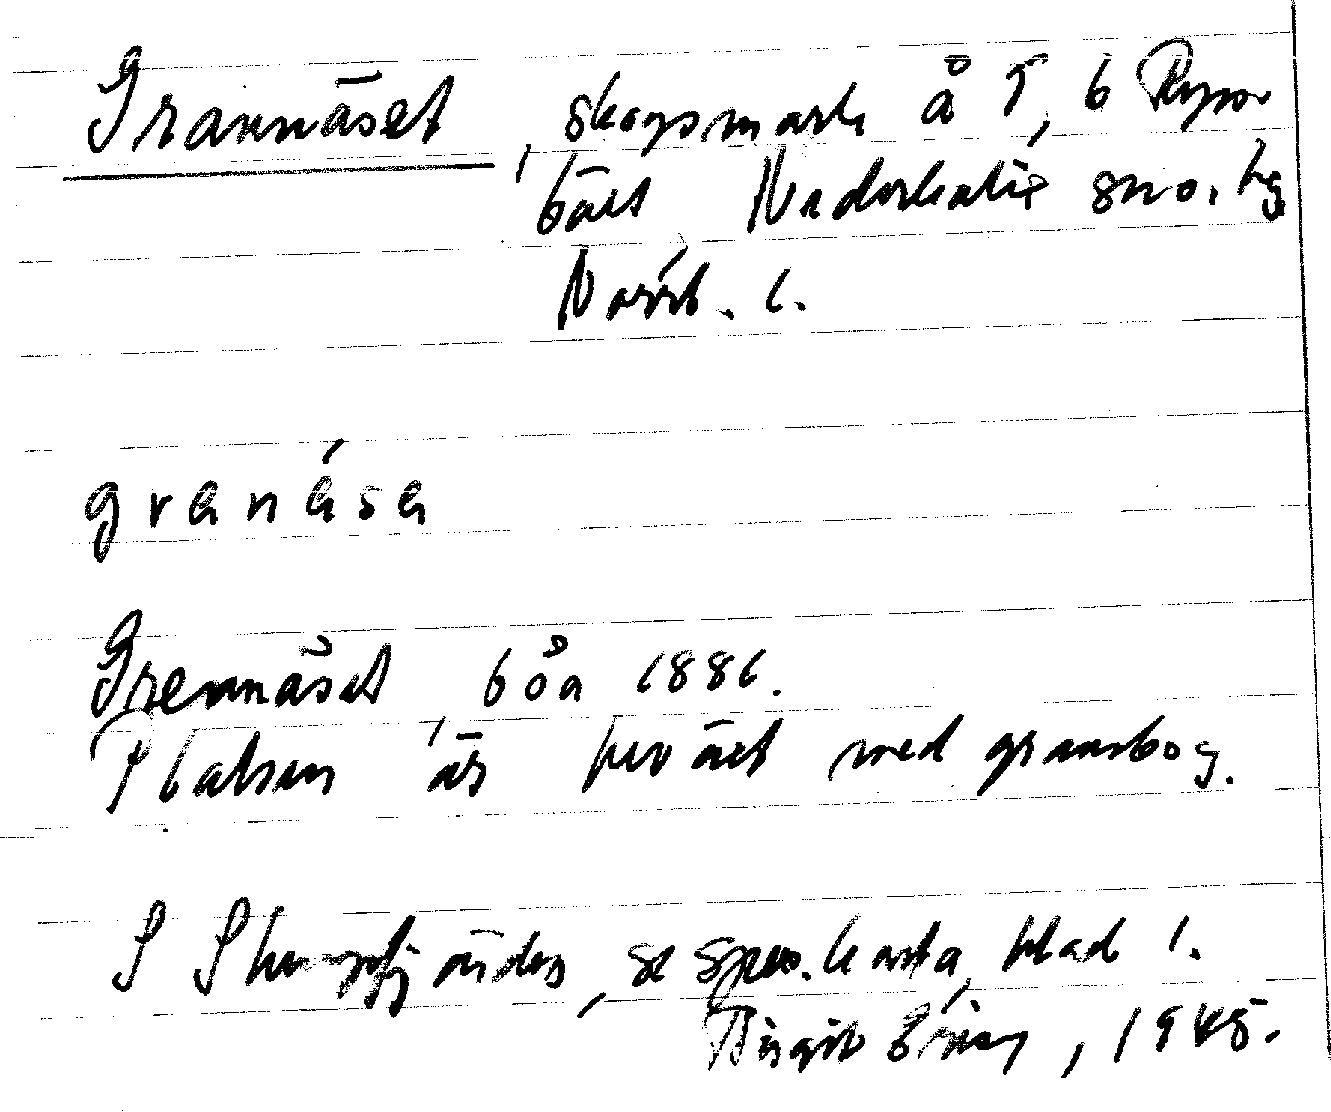 Grannäset, skogsmark å T, 6 Rysse
bält Nederkalix sn o. hg
Norrb. l.
granäsa
Grennäset båa 1886.
Platsen är beväxt med granskog.
S Skumpfjärden, se spec.karta, blad 1.
Birgit 1945.